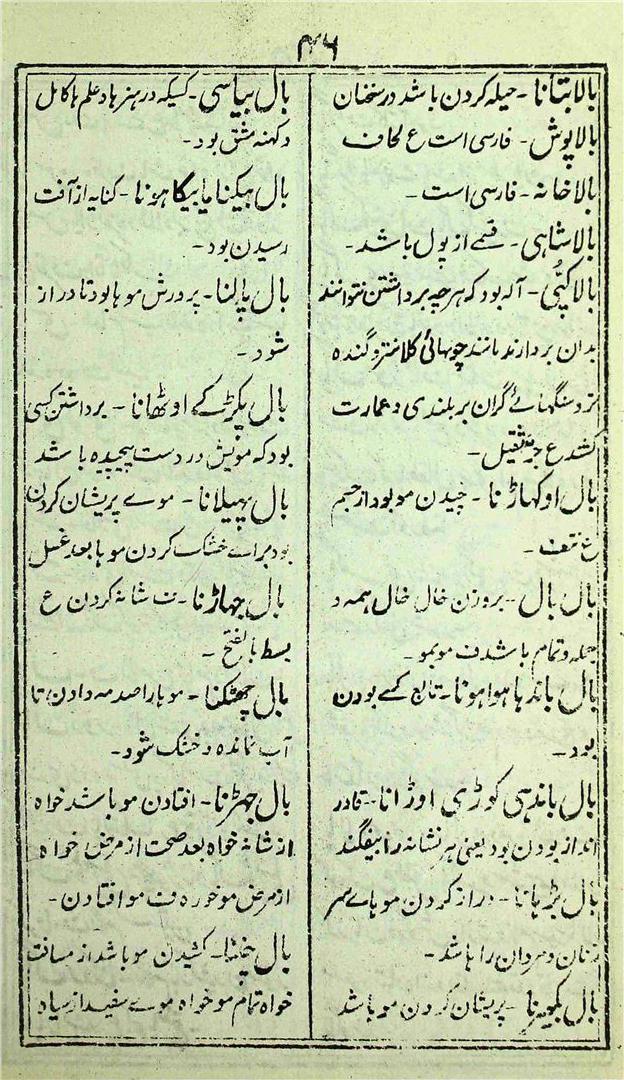 ۴۶
بالا بتانا - حیله کردن باشد در سخنان
بالاپوش - فارسی است ع لحاف
بالاخانه - فارسی است -
بالاشاهی - قسمے از پول باشد -
بالاکپّی - آله بود که هر چه برداشتن نتوانند
بدان بردارند مانند چوبهائی کلانتر و گنده
تر و سنگهائے گران بر بلندی و عمارت
کشند ع جر ثقیل -
بال اوکهاڑنا - چیدن مو بود از جسم
ع نتف -
بال بال - بروزن خال خال همه و
جمله و تمام باشد ف موبمو -
بال باندها هوا هونا - تابع کسے بودن
بود -
بال باندهی کوڑی اوڑانا - قادر
انداز بودن بود یعنی هر نشانه را بیفگند
بال بڑہانا - دراز کردن موہاے سر
زنان و مردان را باشد -
بال بکهیرنا - پریشان کردن مو باشد
بال بیاسی - کسیکه در هنرها و علم ها کامل
و کهنه مشق بود -
بال بیکنا یا بیکا هونا - کنایه از آفت
رسیدن بود -
بال پالنا - پرورش موها بود تا دراز
شود -
بال پکڑکے اوٹهانا - برداشتن کسی
بود که مویش در دست پیچیده باشد
بال پهیلانا - موے پریشان کردن
بود براے خشک کردن موها بعد غسل
بال جهاڑنا - ف شانه کردن ع
بسط بالفتح -
بال جهٹکنا - مو را صدمه دادن تا
آب نمانده و خشک شود -
بال جهڑنا - افتادن مو باشد خواه
از شانه خواه بعد صحت از مرض خواه
از مرض مو خوره ف مو افتادن -
بال چننا - کشیدن مو باشد از مسافت
خواه تمام مو خواه موے سفید از سیاه